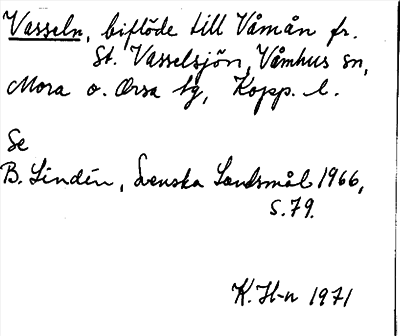 Vasseln, biflöde till Våmån fr.
St. Vasselsjön, Våmhus sn,
Mora o. Orsa tg, Kopp. l.
Se
B. Lindén, Svenska Landsmål 1966,
s.79.
K. H-n 1971